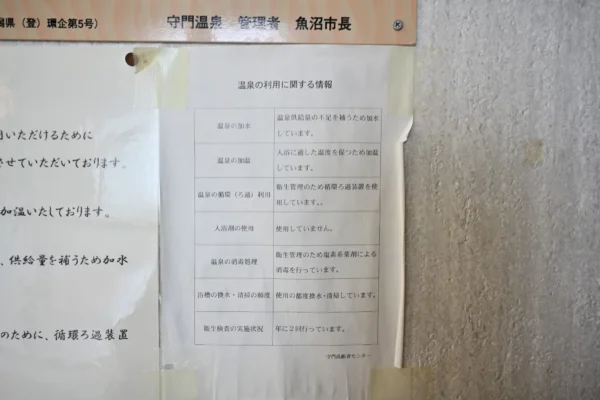 潟県（登）環企第5号）
守門温泉　管理者　魚沼市長
用いただけるために
させていただいております。
加温いたしております。
、供給量を補うため加水
のために、循環ろ過装置
温泉の利用に関する情報
温泉の加水
温泉供給量の不足を補うため加水
しています。
温泉の加温
入浴に適した温度を保つため加温
しています。
温泉の循環（ろ過）利用
衛生管理のため循環ろ過装置を使
用しています。。
入浴剤の使用
使用していません。
温泉の消毒処理
衛生管理のため塩素系薬剤による
消毒を行っています。
浴槽の換水・清掃の頻度
使用の都度換水・清掃しています。
衛生検査の実施状況
年に2回行っています。
守門高齢者センター